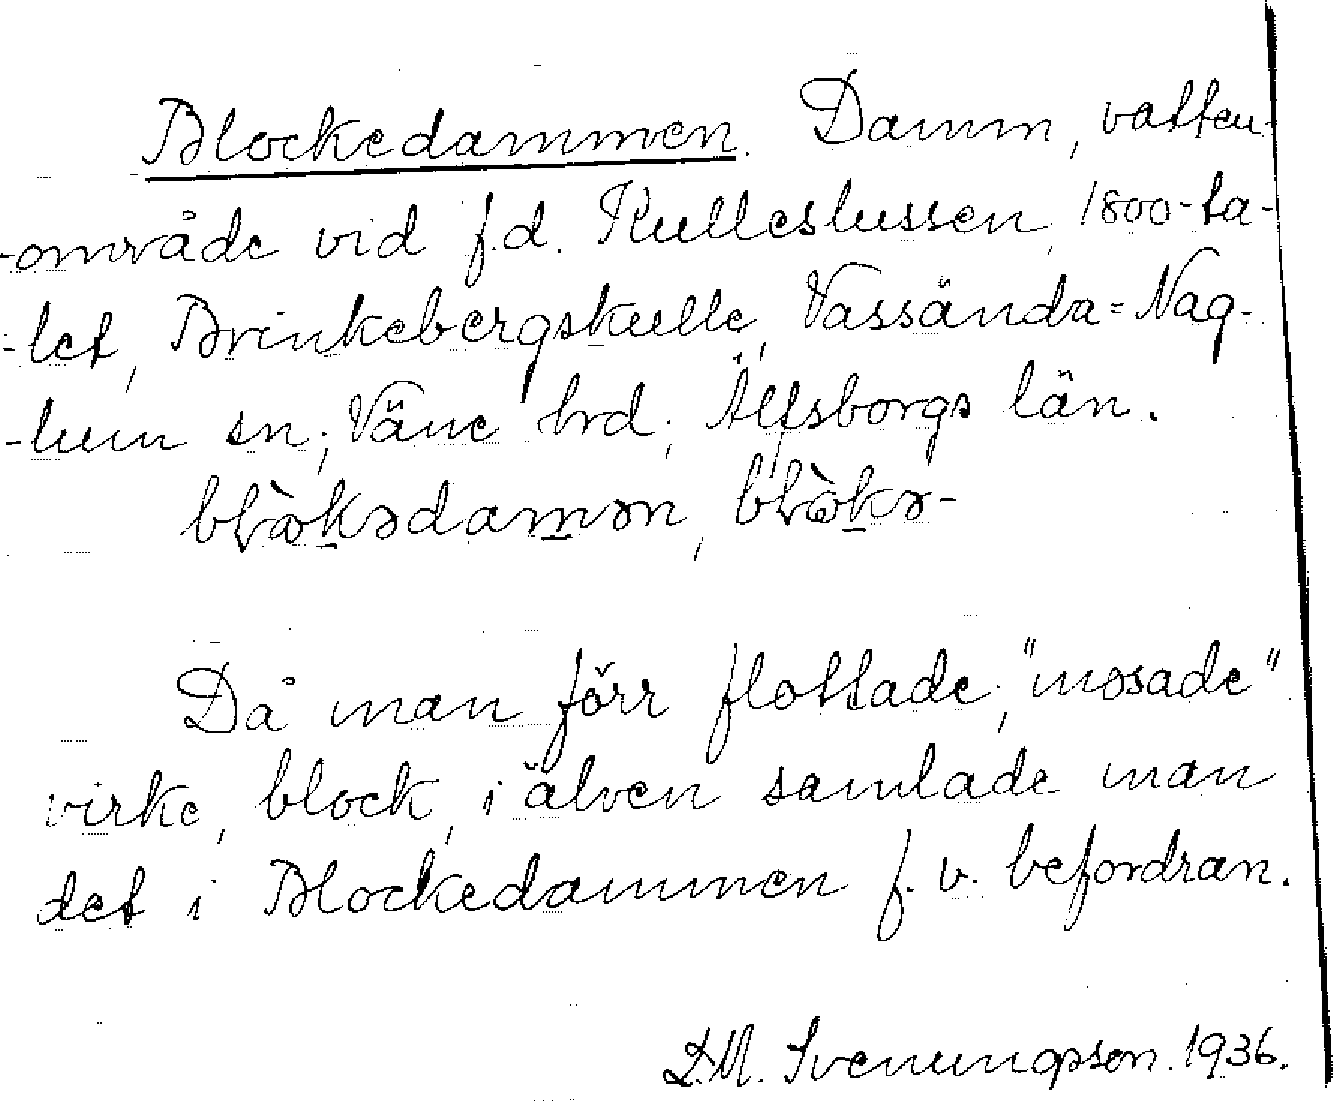 Blockedammen. Damm, vatten-
-område vid f.d. Kulleslussen, 1800-ta-
-let, Brinkebergskulle, Vassända=Nag-
-lum sn; Väne hrd; Älfsborgs län.
Då man förr flottade, "mosade"
virke, block, i älven samlade man
det i Blockedammen f. v. befordran.
D.M. Svenungsson. 1936.